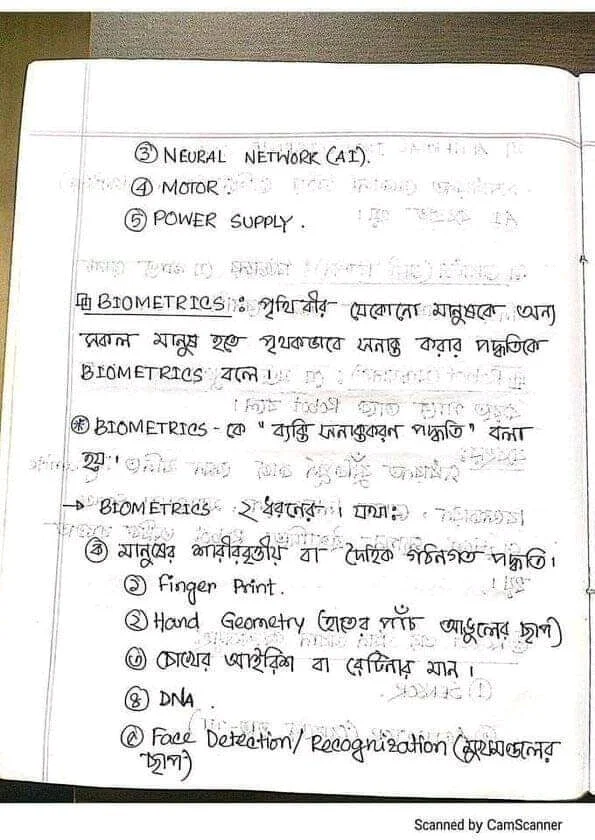 ③ NEURAL NETWORK (AI).
④ MOTOR.
⑤ POWER SUPPLY.
BIOMETRICS : পৃথিবীর যেকোনো মানুষকে অন্য
সকল মানুষ হতে পৃথকভাবে সনাক্ত করার পদ্ধতিকে
BIOMETRICS বলে।
* BIOMETRICS - কে "ব্যক্তি সনাক্তকরণ পদ্ধতি" বলা
হয়।
→ BIOMETRICS ২ ধরনের। যথা:
ক) মানুষের শারীরবৃত্তীয় বা দৈহিক গঠনগত পদ্ধতি।
১) Finger Print.
২) Hand Geometry (হাতের পাঁচ আঙুলের ছাপ)
৩) চোখের আইরিশ বা রেটিনার মান।
৪) DNA.
৫) Face Detection/Recognization (মুখমন্ডলের
ছাপ)
Scanned by CamScanner